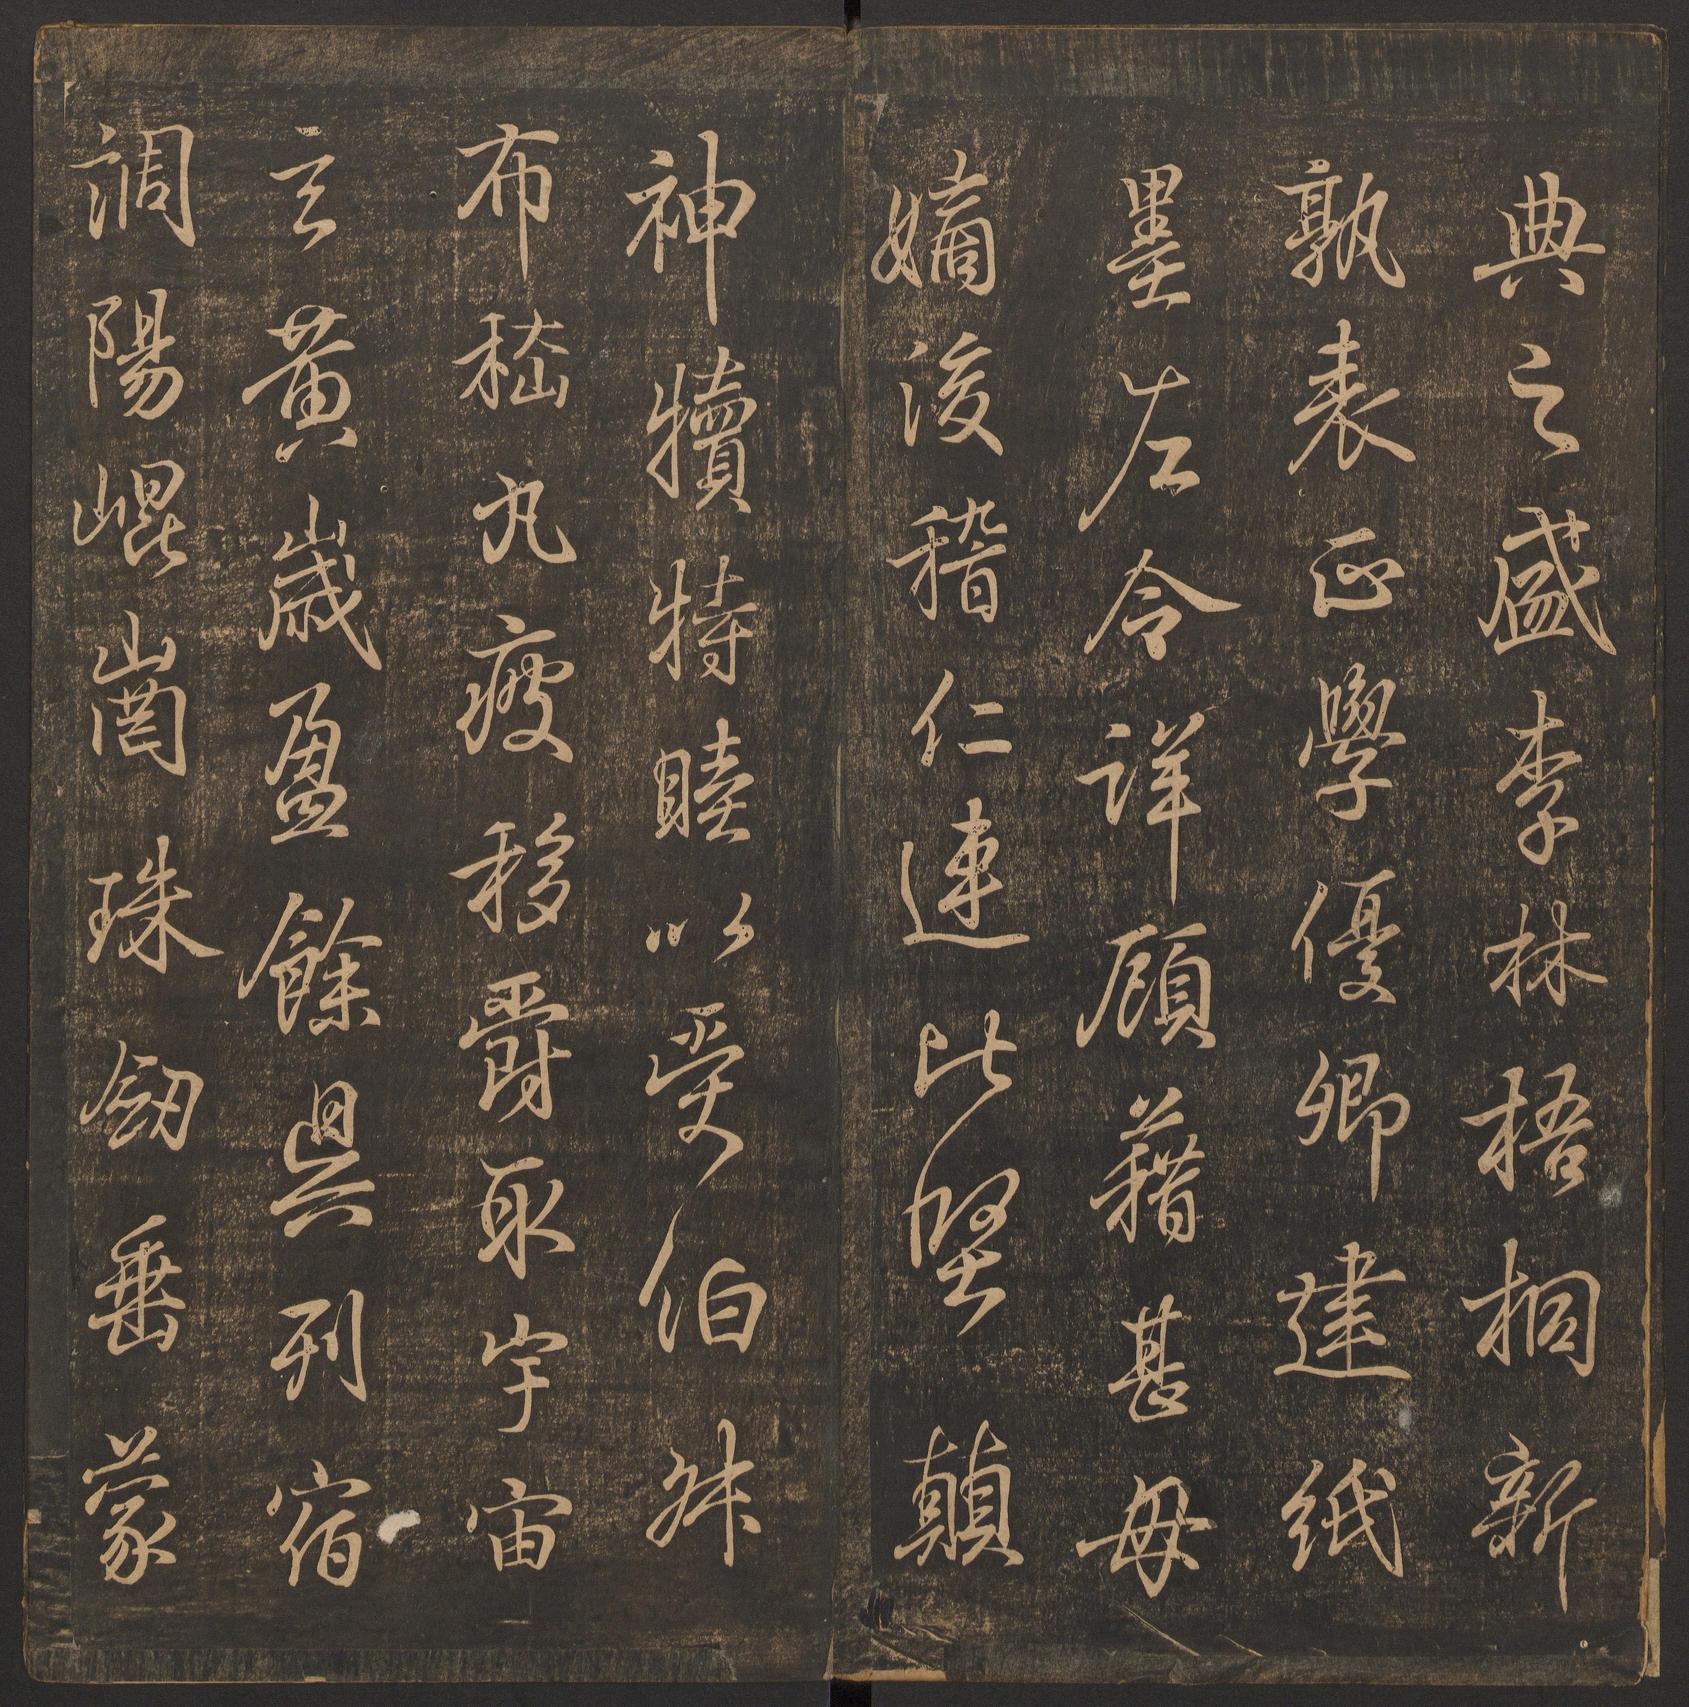 典之盛李林梧桐新
孰表正學優卿建紙
墨左令詳顧藉甚毋
嫡後稽仁連比堅顛
神犢特睦以受伯叔
布嵇丸疲移爵取宇宙
玄黃歲盈餘具列宿
調陽崐崗珠劒垂蒙